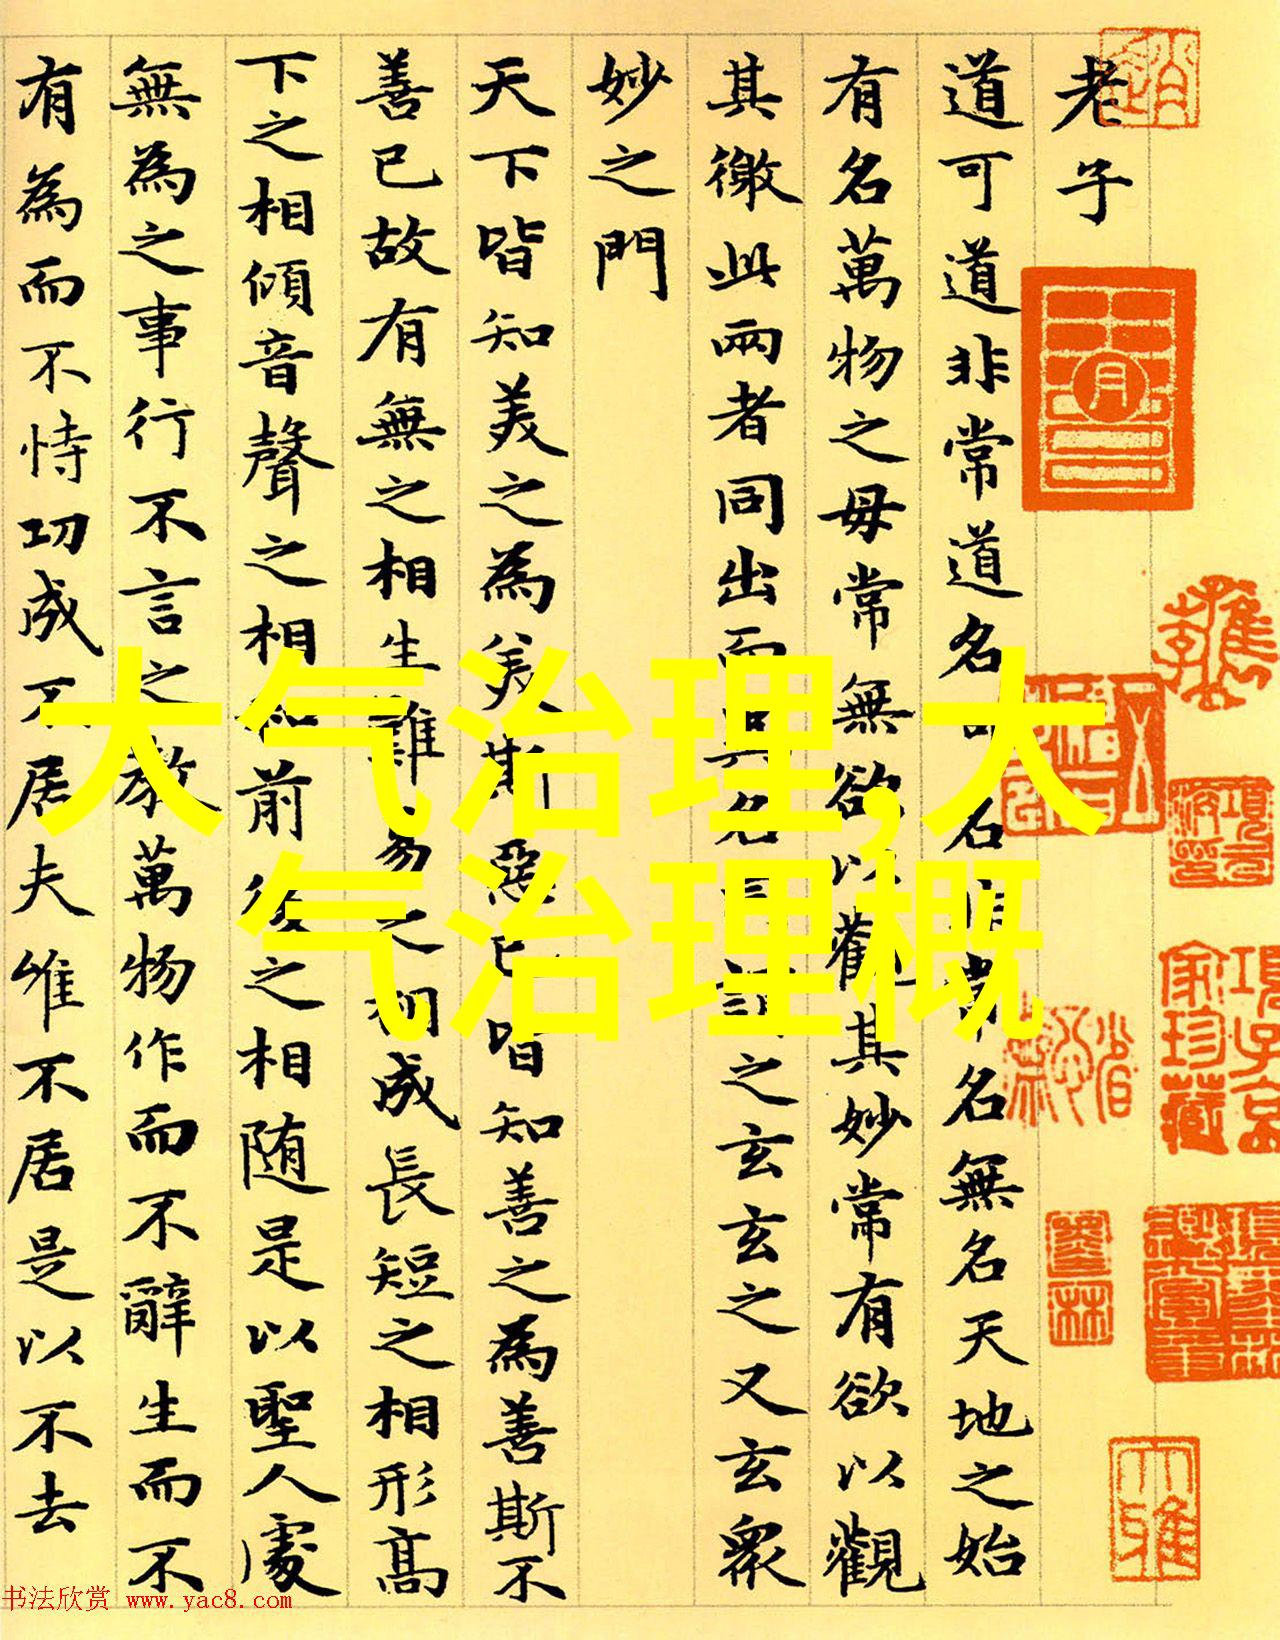 老子
道可道非常道名可名非常名無名天地之始
有名萬物之母常無欲以觀其妙常有欲以觀
其徼此兩者同出而異名同謂之玄玄之又玄衆
妙之門
天下皆知美之為美斯惡已皆知善之為善斯不
善已故有無之相生難易之相成長短之相形高
下之相傾音聲之相和前後之相随是以聖人處
無為之事行不言之教萬物作而不辭生而不
有為而不恃功成不居夫唯不居是以不去
大气治理,大
气治理概
項子京
家珍藏
书法欣赏 www.yac8.com